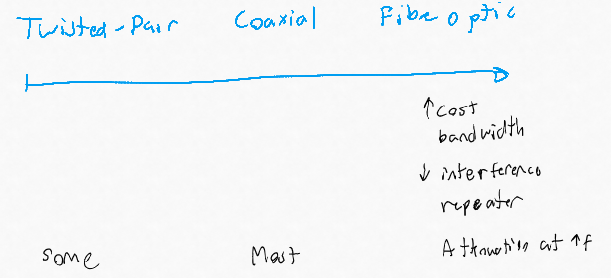 Twisted-Pair Coaxial Fibe optic
↑ cost
bandwidth
↓ interference
repeater
some Most Attnuation at ↑f